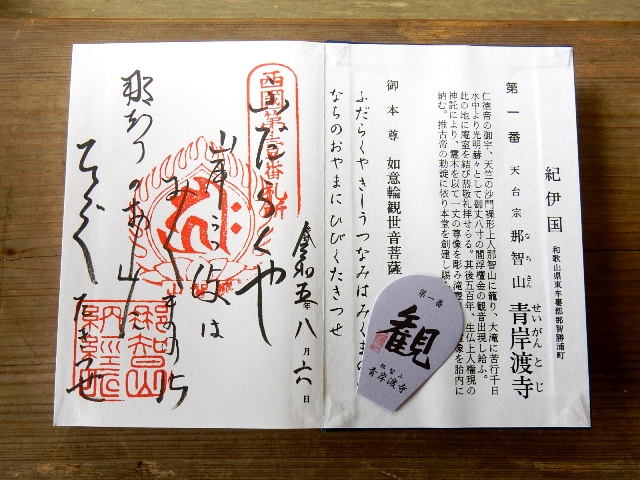 紀伊国 和歌山県東牟婁郡那智勝浦町
第一番 天台宗 那智山 青岸渡寺
なちさん
せいがんとじ
仁徳帝の御宇、天竺の沙門裸形上人那智山に籠り、大滝に苦行千日
水中より光明赫々として御丈八寸の閻浮檀金の観音出現し給ふ。
此の地に庵室を結び恭敬礼拝せらる。其後五百年、生仏上人権現の
神託により、霊木を以て一丈の尊像を彫み滝壺
像を胎内に
納む。推古帝の勅定に依り本堂を創建し賜
御本尊 如意輪観世音菩薩
ふだらくやきしうつなみはみくまの
なちのおやまにひびくたきつせ
第一番
観
那智山
青岸渡寺
西國第一番札所
令和五年八月六日
ふだらくや
岸うつ波は
みくまのの
那ちのお山に
ひびく
たきつせ
那智山
那智山
納経所